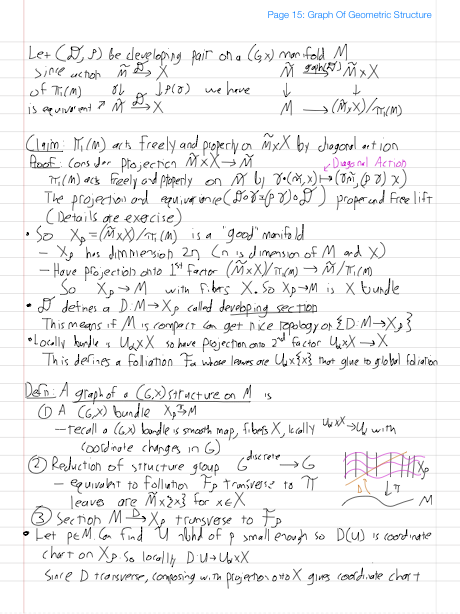 Page 15: Graph Of Geometric Structure
Let (𝒟, ρ) be developing pair on a (G,X) manifold M
Since action M̃ 𝒟→ X M̃ graph(𝒟)→ M̃×X
of π₁(M) γ↓ ↓ρ(γ) we have ↓ ↓
is equivariant M̃ 𝒟→ X M → (M̃×X)/π₁(M)
Claim: π₁(M) acts freely and properly on M̃×X by diagonal action
Proof: Consider projection M̃×X → M̃ Diagonal Action
π₁(M) acts freely and properly on M̃ by γ•(m̃,x) ↦ (γm̃, (ργ)x)
The projection and equivariance (𝒟∘γ=(ργ)∘𝒟) proper and free lift
(Details are exercise)
• So Xρ = (M̃×X)/π₁(M) is a "good" manifold
- Xρ has dimmension 2n (n is dimension of M and X)
- Have projection onto 1st factor (M̃×X)/π₁(M) → M̃/π₁(M)
So Xρ → M with fibers X. So Xρ→M is X bundle
• 𝒟 defines a D: M→Xρ called developing section
This means if M is compact can get nice topology on {D: M→Xρ}
• Locally bundle is Uα×X so have projection onto 2nd factor Uα×X → X
This defines a folliation Fα whose leaves are Uα×{x} that glue to global foliation
Defn: A graph of a (G,X) structure on M is
① A (G,X) bundle Xρ π→ M
- recall a (G,X) bundle is smooth map, fibers X, locally Uα×X→Uα with
coordinate changes in G)
② Reduction of structure group G discrete → G
- equivalent to folliation Fρ transverse to π
leaves are M̃×{x} for x∈X
Xρ
D ↓π
M
③ Section M D→ Xρ transverse to Fρ
• Let p∈M. Can find U nbhd of p small enough so D(U) is coordinate
chart on Xρ. So locally D: U→Uα×X
Since D transverse, composing with projection onto X gives coordinate chart